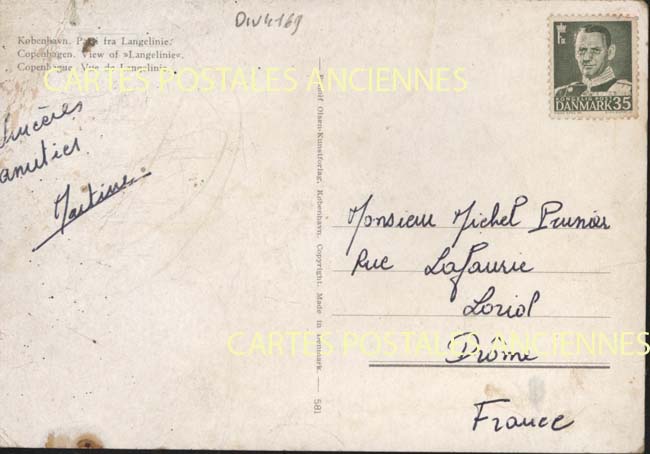 Div 4169
København. Parti fra Langelinie.
Copenhagen. View of »Langelinie«.
Copenhague. Vue de Langelinie.
CARTES POSTALES ANCIENNES
Sincères
amitiés
Martine
Olsen-Kunstforlag, København. Copyright. Made in Denmark. — 581
DANMARK 35
Monsieur Michel Prunier
Rue Lafaurie
Loriol
CARTES POSTALES ANCIENNES
Drôme
France